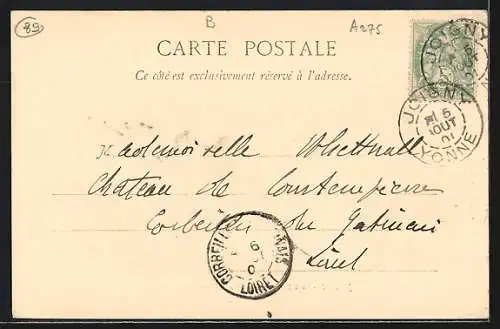 89
B
A275
CARTE POSTALE
Ce côté est exclusivement réservé à l'adresse.
JOIGNY
JOIGNY
5
AOUT
01
YONNE
Mademoiselle Whettnall
Chateau de Courtempierre
Corbeilles du Gatinais
Loiret
CORBEILL NAIS
6
0
LOIRET